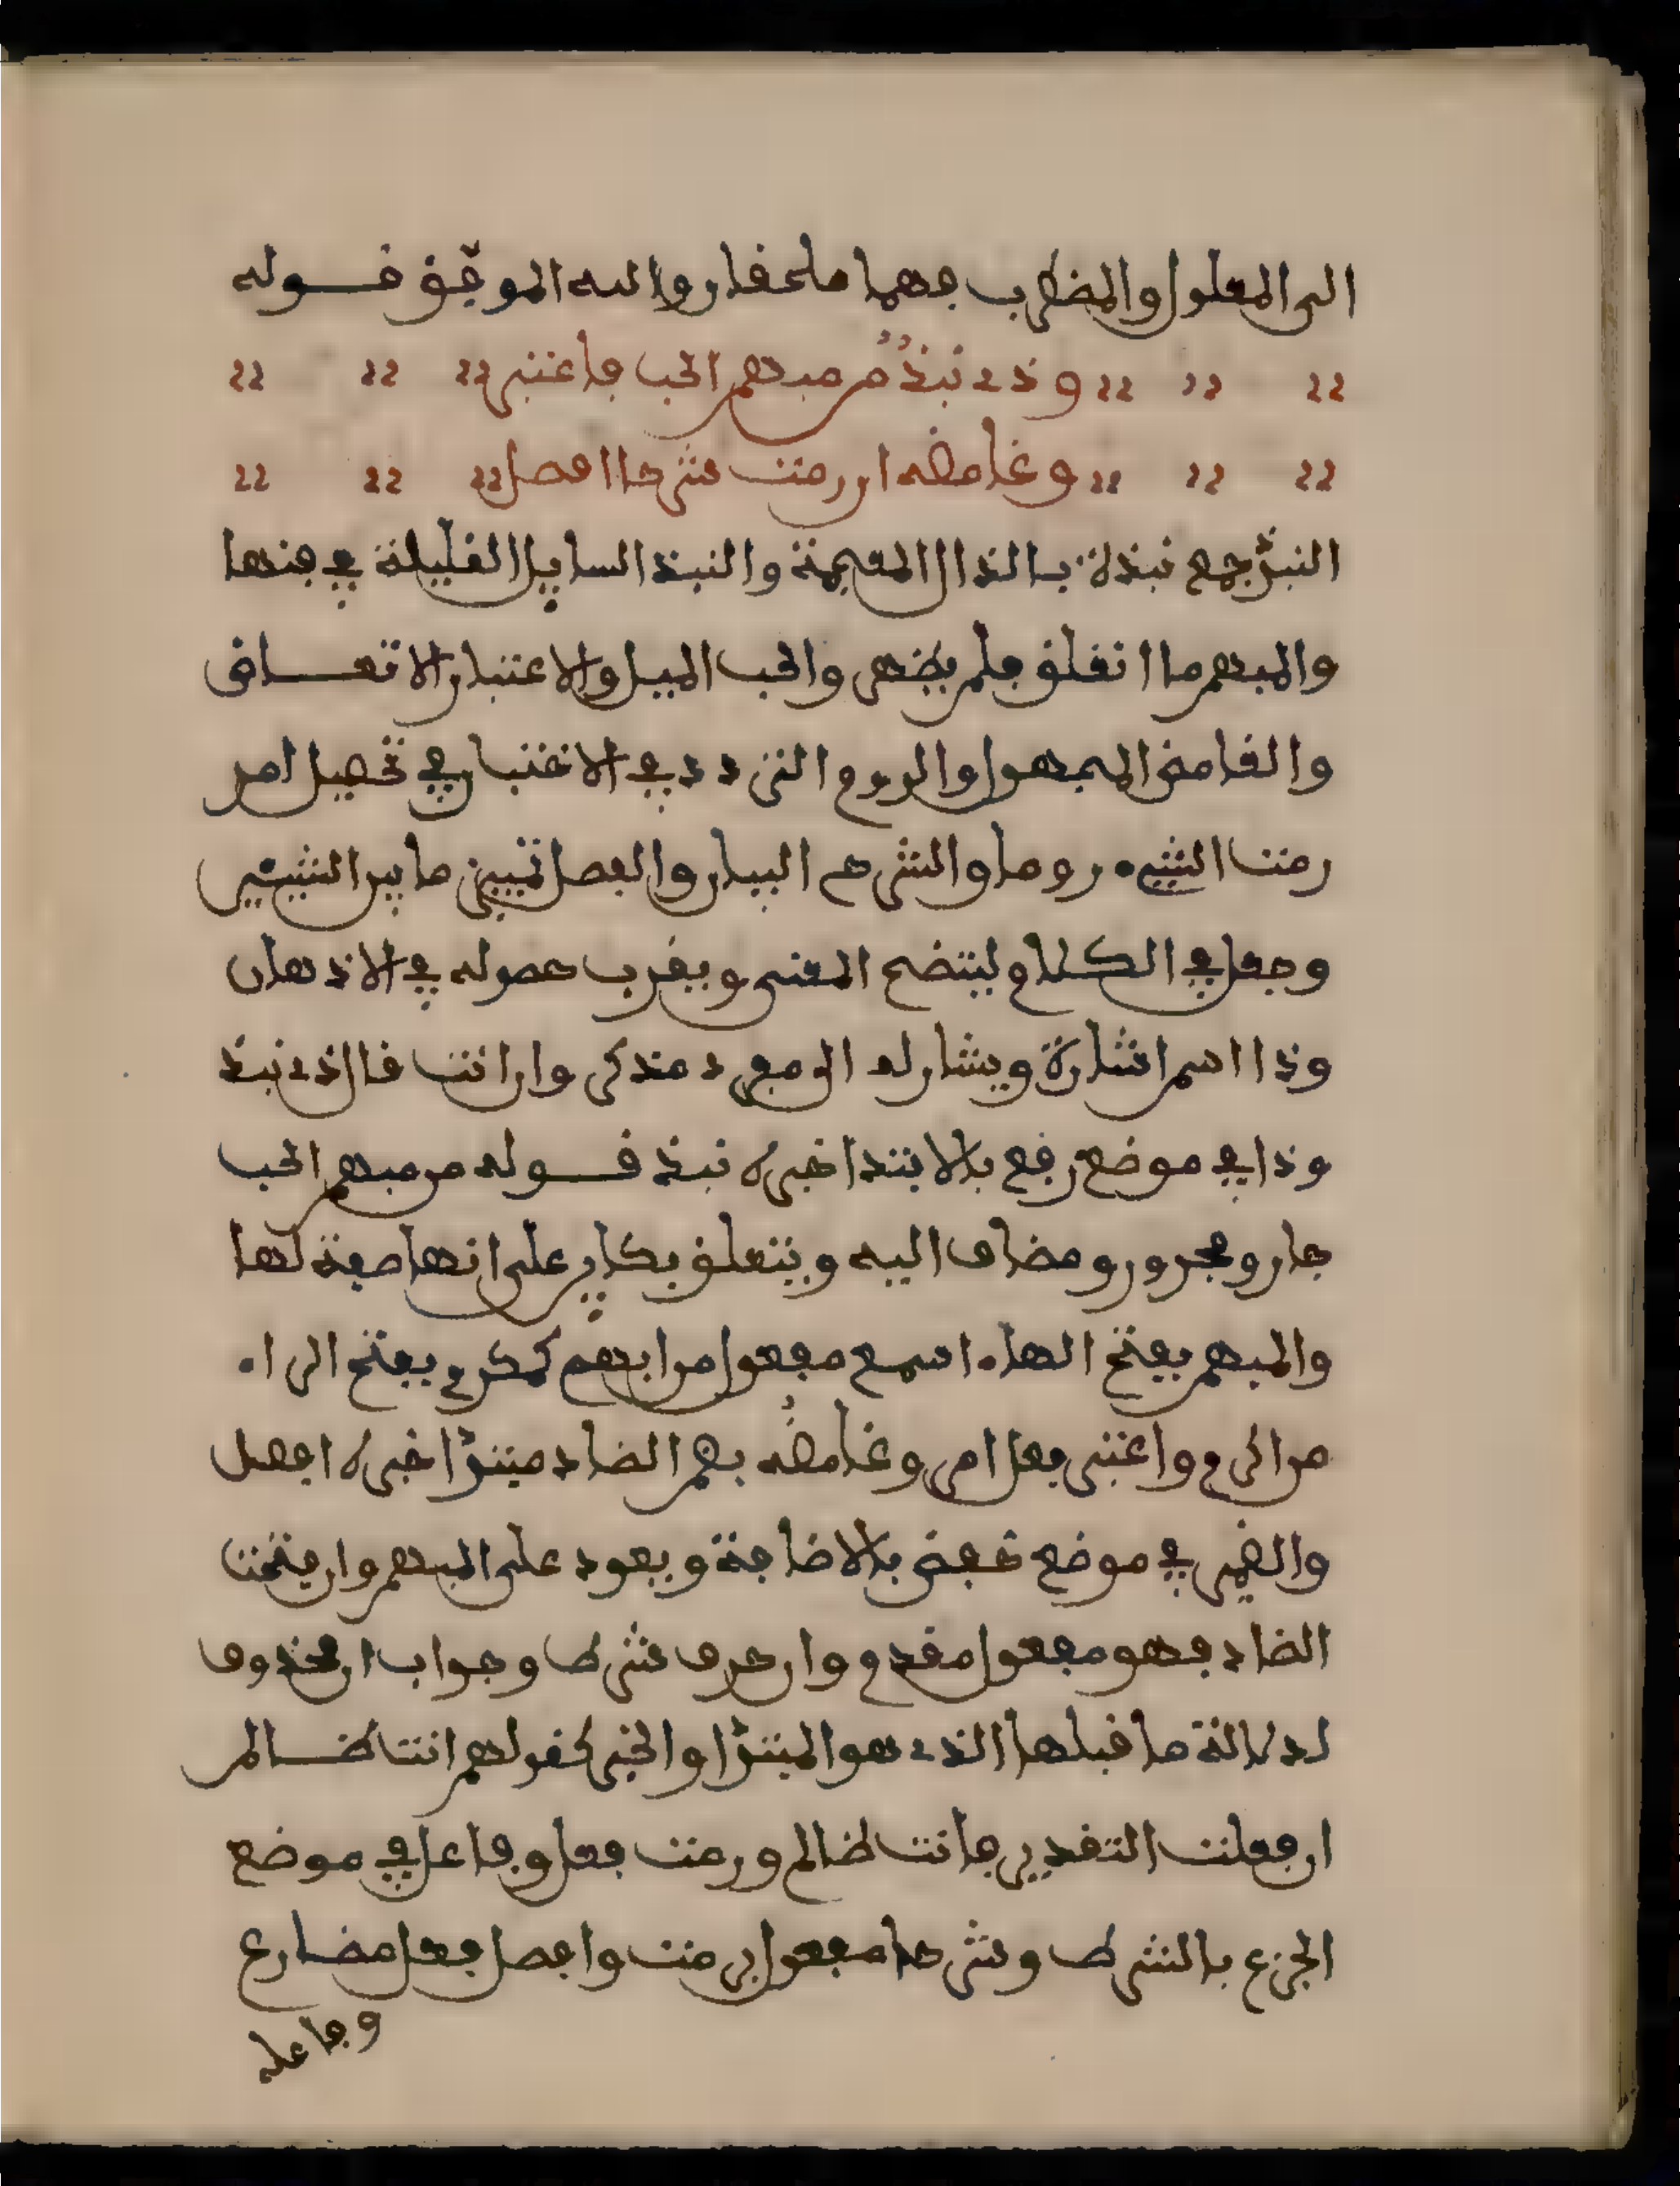 الى المعلول والمضطرب فهما ملحقان والله الموفق قـــوله
وذي نبذ من مبهم الحب فاعتبر
وغامضه ان رمت شرحا افصل
النبذ جمع نبذة بالذال المعجمة والنبذ السايل القليلة في فنها
والمبهم ما انغلق فلم يظهر والحب الميل والاعتبار الاتعـــاض
والغامض المجهول والروم التردد في الاختبار في تحصيل امر
رمت الشيء روما والشرح البيان والفصل تمييز ما بين الشيئين
وجعل في الكلام ليتضح المعنى ويقرب حصوله في الاذهان
وذا اسم اشارة ويشار له الى مفرد مذكر وان انت قال ذي نبذ
وذا في موضع رفع بالابتدا خبره نبذ قـــوله من مبهم الحب
جار ومجرور ومضاف اليه ويتعلق بكاين على انها صفة لها
والمبهم بفتح الهاء اسم مفعول من ابهم كمكرم بفتح الراء
من اكرم واعتبر فعل امر وغامضه بضم الضاد مبتدا خبره افصل
والضمير في موضع خفض بالاضافة ويعود على المبهم وان فتحت
الضاد فهو مفعول مقدم وان حرف شرط وجواب ان محذوف
لدلالة ما قبلها الذي هو المبتدا والخبر كقولهم انت ظـــالم
ان فعلت التقدير فانت ظالم ورمت فعل وفاعل في موضع
الجزم بالشرط وشرحا مفعول برمت وافصل فعل مضارع
وفاعله